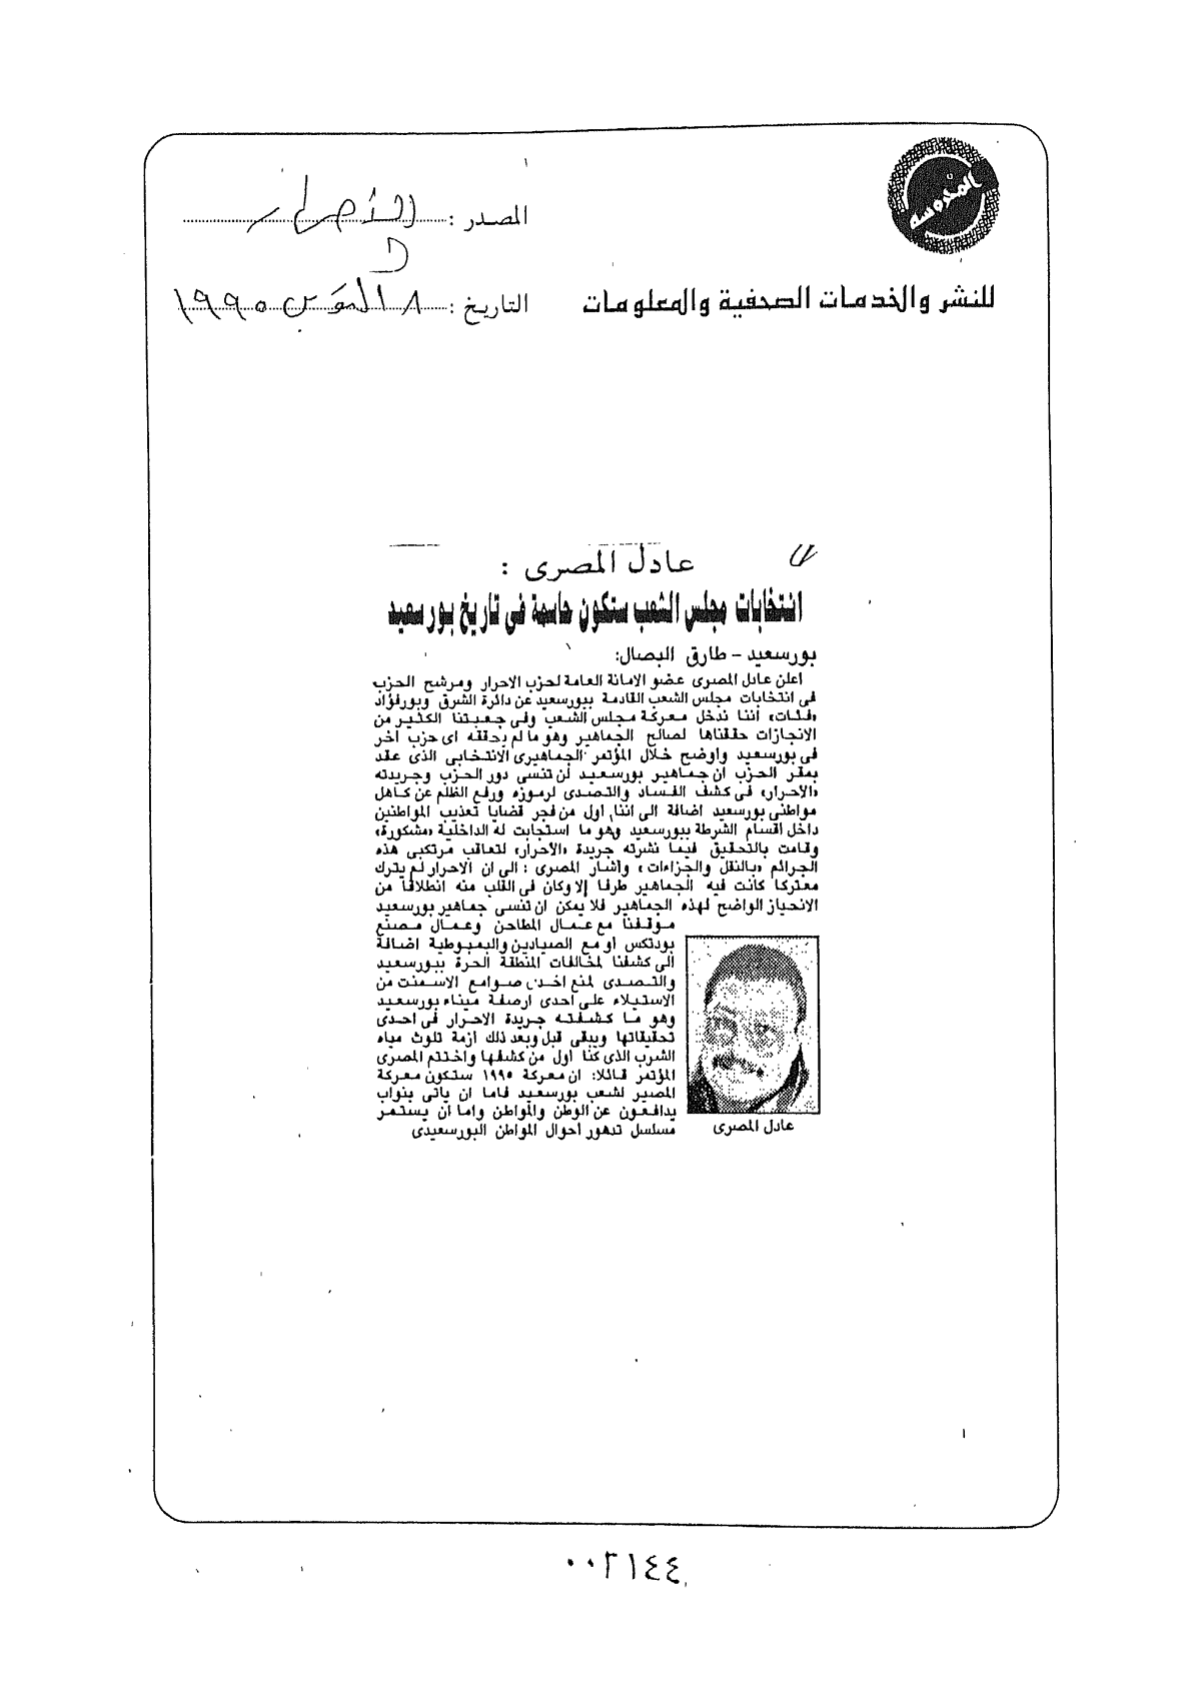 المحروسة
المصدر : الأحرار
للنشر والخدمات الصحفية والمعلومات
التاريخ : ٨ ١٩٩٥
عادل المصرى :
انتخابات مجلس الشعب ستكون حاسمة فى تاريخ بورسعيد
بورسعيد - طارق البصال:
اعلن عادل المصرى عضو الامانة العامة لحزب الاحرار ومرشح الحزب
فى انتخابات مجلس الشعب القادمة ببورسعيد عن دائرة الشرق وبورفؤاد
«فئات» اننا ندخل معركة مجلس الشعب وفى جعبتنا الكثير من
الانجازات حققناها لصالح الجماهير وهو ما لم يحققه اى حزب اخر
فى بورسعيد واوضح خلال المؤتمر الجماهيرى الانتخابى الذى عقد
بمقر الحزب ان جماهير بورسعيد لن تنسى دور الحزب وجريدته
«الاحرار» فى كشف الفساد والتصدى لرموزه ورفع الظلم عن كاهل
مواطنى بورسعيد اضافة الى اننا اول من فجر قضايا تعذيب المواطنين
داخل اقسام الشرطة ببورسعيد وهو ما استجابت له الداخلية «مشكورة»
وقامت بالتحقيق فيما نشرته جريدة «الاحرار» لتعاقب مرتكبى هذه
الجرائم «بالنقل والجزاءات» واشار المصرى : الى ان الاحرار لم يترك
معتركا كانت فيه الجماهير طرفا إلا وكان فى القلب منه انطلاقا من
الانحياز الواضح لهذه الجماهير فلا يمكن ان تنسى جماهير بورسعيد
موقفنا مع عمال المطاحن وعمال مصنع
بودتكس او مع الصيادين والبمبوطية اضافة
الى كشفنا لمخالفات المنطقة الحرة ببورسعيد
والتصدى لمنع صوامع الاسمنت من
الاستيلاء على احدى ارصفة ميناء بورسعيد
وهو ما كشفته جريدة الاحرار فى احدى
تحقيقاتها ويبقى قبل وبعد ذلك ازمة تلوث مياه
الشرب الذى كنا اول من كشفها واختتم المصرى
المؤتمر قائلا: ان معركة ١٩٩٥ ستكون معركة
المصير لشعب بورسعيد فاما ان ياتى بنواب
يدافعون عن الوطن والمواطن واما ان يستمر
مسلسل تدهور أحوال المواطن البورسعيدى
عادل المصرى
٠٠٢١٤٤